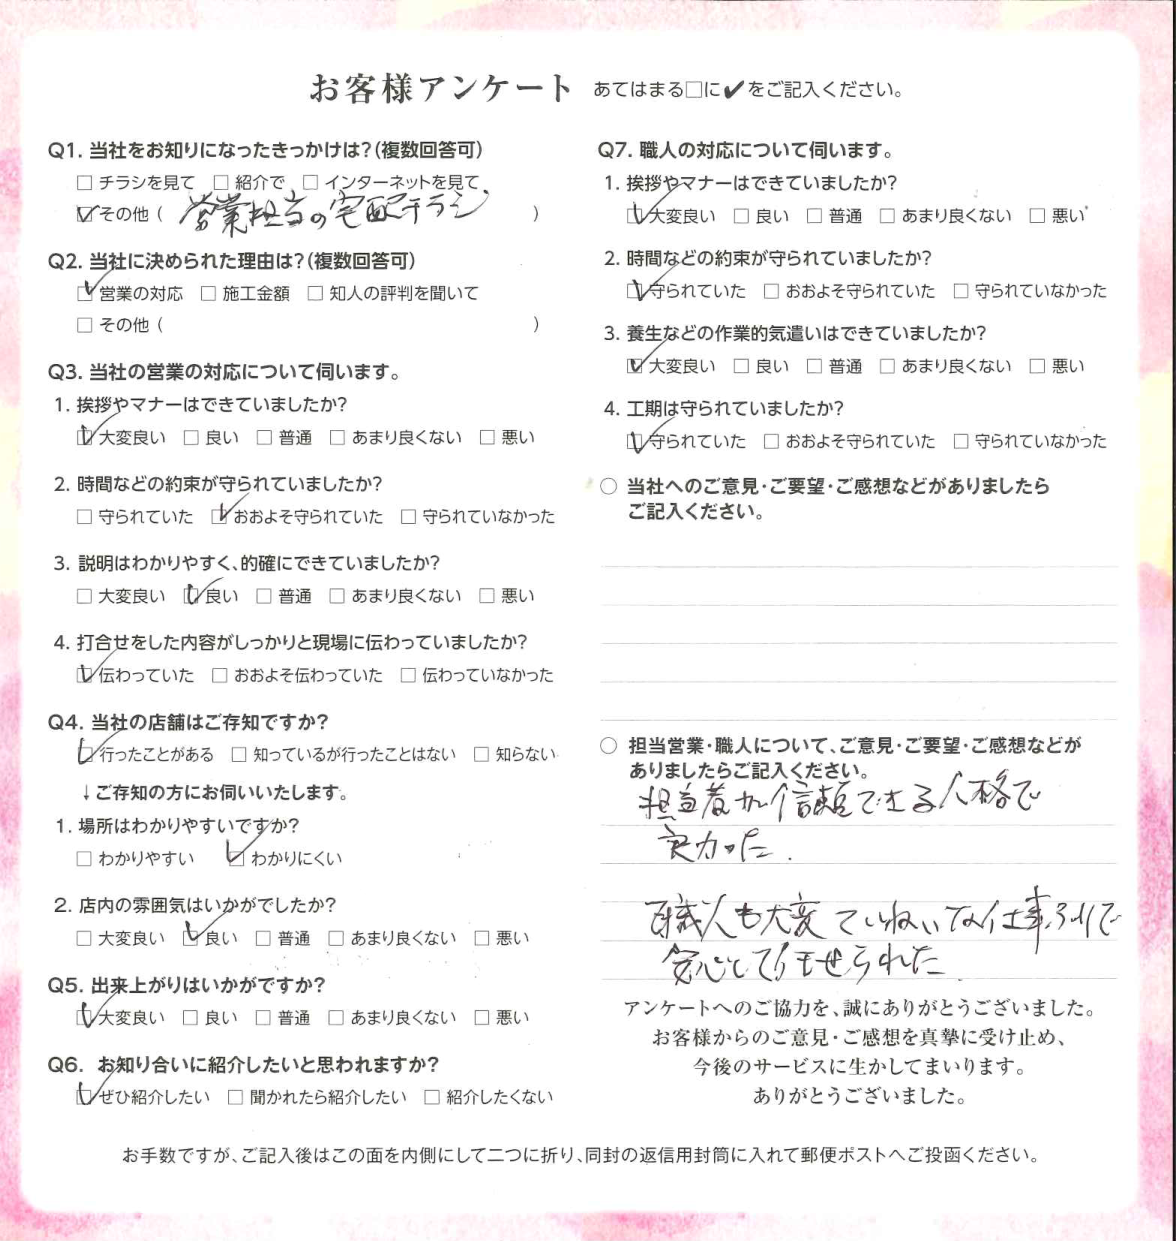 お客様アンケート あてはまる□に✔をご記入ください。
Q1. 当社をお知りになったきっかけは?(複数回答可)
□ チラシを見て □ 紹介で □ インターネットを見て
☑ その他 ( 営業担当の宅配チラシ )
Q2. 当社に決められた理由は?(複数回答可)
☑ 営業の対応 □ 施工金額 □ 知人の評判を聞いて
□ その他 ( )
Q3. 当社の営業の対応について伺います。
1. 挨拶やマナーはできていましたか?
☑ 大変良い □ 良い □ 普通 □ あまり良くない □ 悪い
2. 時間などの約束が守られていましたか?
□ 守られていた ☑ おおよそ守られていた □ 守られていなかった
3. 説明はわかりやすく、的確にできていましたか?
□ 大変良い ☑ 良い □ 普通 □ あまり良くない □ 悪い
4. 打合せをした内容がしっかりと現場に伝わっていましたか?
☑ 伝わっていた □ おおよそ伝わっていた □ 伝わっていなかった
Q4. 当社の店舗はご存知ですか?
☑ 行ったことがある □ 知っているが行ったことはない □ 知らない
↓ご存知の方にお伺いいたします。
1. 場所はわかりやすいですか?
□ わかりやすい ☑ わかりにくい
2. 店内の雰囲気はいかがでしたか?
□ 大変良い ☑ 良い □ 普通 □ あまり良くない □ 悪い
Q5. 出来上がりはいかがですか?
☑ 大変良い □ 良い □ 普通 □ あまり良くない □ 悪い
Q6. お知り合いに紹介したいと思われますか?
☑ ぜひ紹介したい □ 聞かれたら紹介したい □ 紹介したくない
Q7. 職人の対応について伺います。
1. 挨拶やマナーはできていましたか?
☑ 大変良い □ 良い □ 普通 □ あまり良くない □ 悪い
2. 時間などの約束が守られていましたか?
☑ 守られていた □ おおよそ守られていた □ 守られていなかった
3. 養生などの作業的気遣いはできていましたか?
☑ 大変良い □ 良い □ 普通 □ あまり良くない □ 悪い
4. 工期は守られていましたか?
☑ 守られていた □ おおよそ守られていた □ 守られていなかった
○ 当社へのご意見・ご要望・ご感想などがありましたら
ご記入ください。
○ 担当営業・職人について、ご意見・ご要望・ご感想などが
ありましたらご記入ください。
担当者が信頼できる人格で
良かった.
職人も大変ていねいな仕事ぶりで
安心して任せられた
アンケートへのご協力を、誠にありがとうございました。
お客様からのご意見・ご感想を真摯に受け止め、
今後のサービスに生かしてまいります。
ありがとうございました。
お手数ですが、ご記入後はこの面を内側にして二つに折り、同封の返信用封筒に入れて郵便ポストへご投函ください。